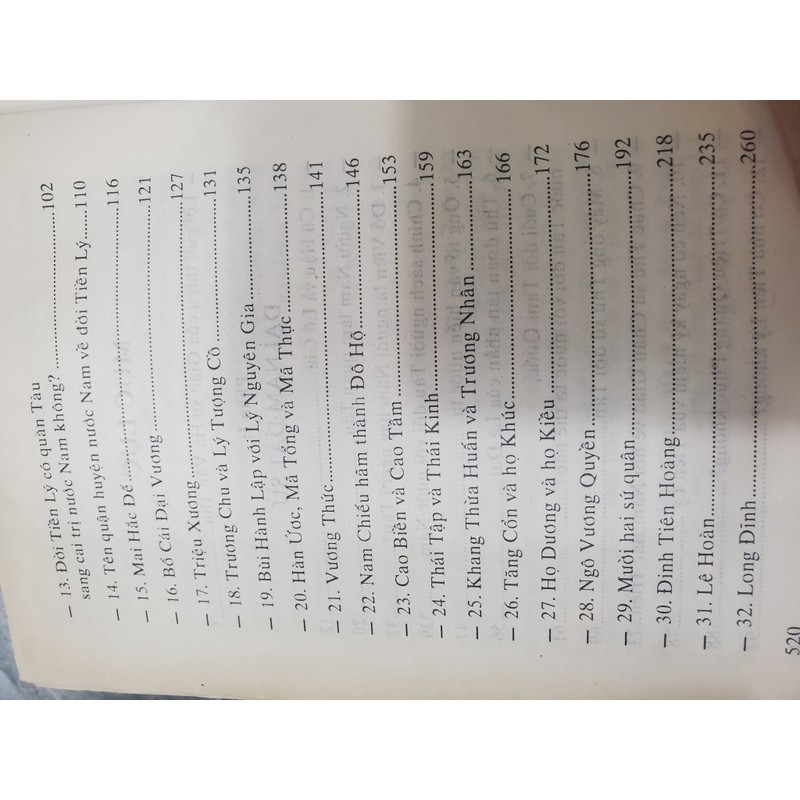 — 13. Đời Tiền Lý có quân Tàu
sang cai trị nước Nam không? ........................102
— 14. Tên quận huyện nước Nam về đời Tiền Lý.......110
— 15. Mai Hắc Đế........................116
— 16. Bố Cái Đại Vương........................121
— 17. Triệu Xương........................127
— 18. Trương Chu và Lý Tượng Cồ........................131
— 19. Bùi Hành Lập với Lý Nguyên Gia........................135
— 20. Hàn Ước, Mã Tổng và Mã Thực........................138
— 21. Vương Thức........................141
— 22. Nam Chiếu hãm thành Đô Hộ........................146
— 23. Cao Biền và Cao Tầm........................153
— 24. Thái Tập và Thái Kinh........................159
— 25. Khang Thừa Huấn và Trương Nhân........................163
— 26. Tăng Cổn và họ Khúc........................166
— 27. Họ Dương và họ Kiều........................172
— 28. Ngô Vương Quyền........................176
— 29. Mười hai sứ quân........................192
— 30. Đinh Tiên Hoàng........................218
— 31. Lê Hoàn........................235
— 32. Long Đĩnh........................260
520